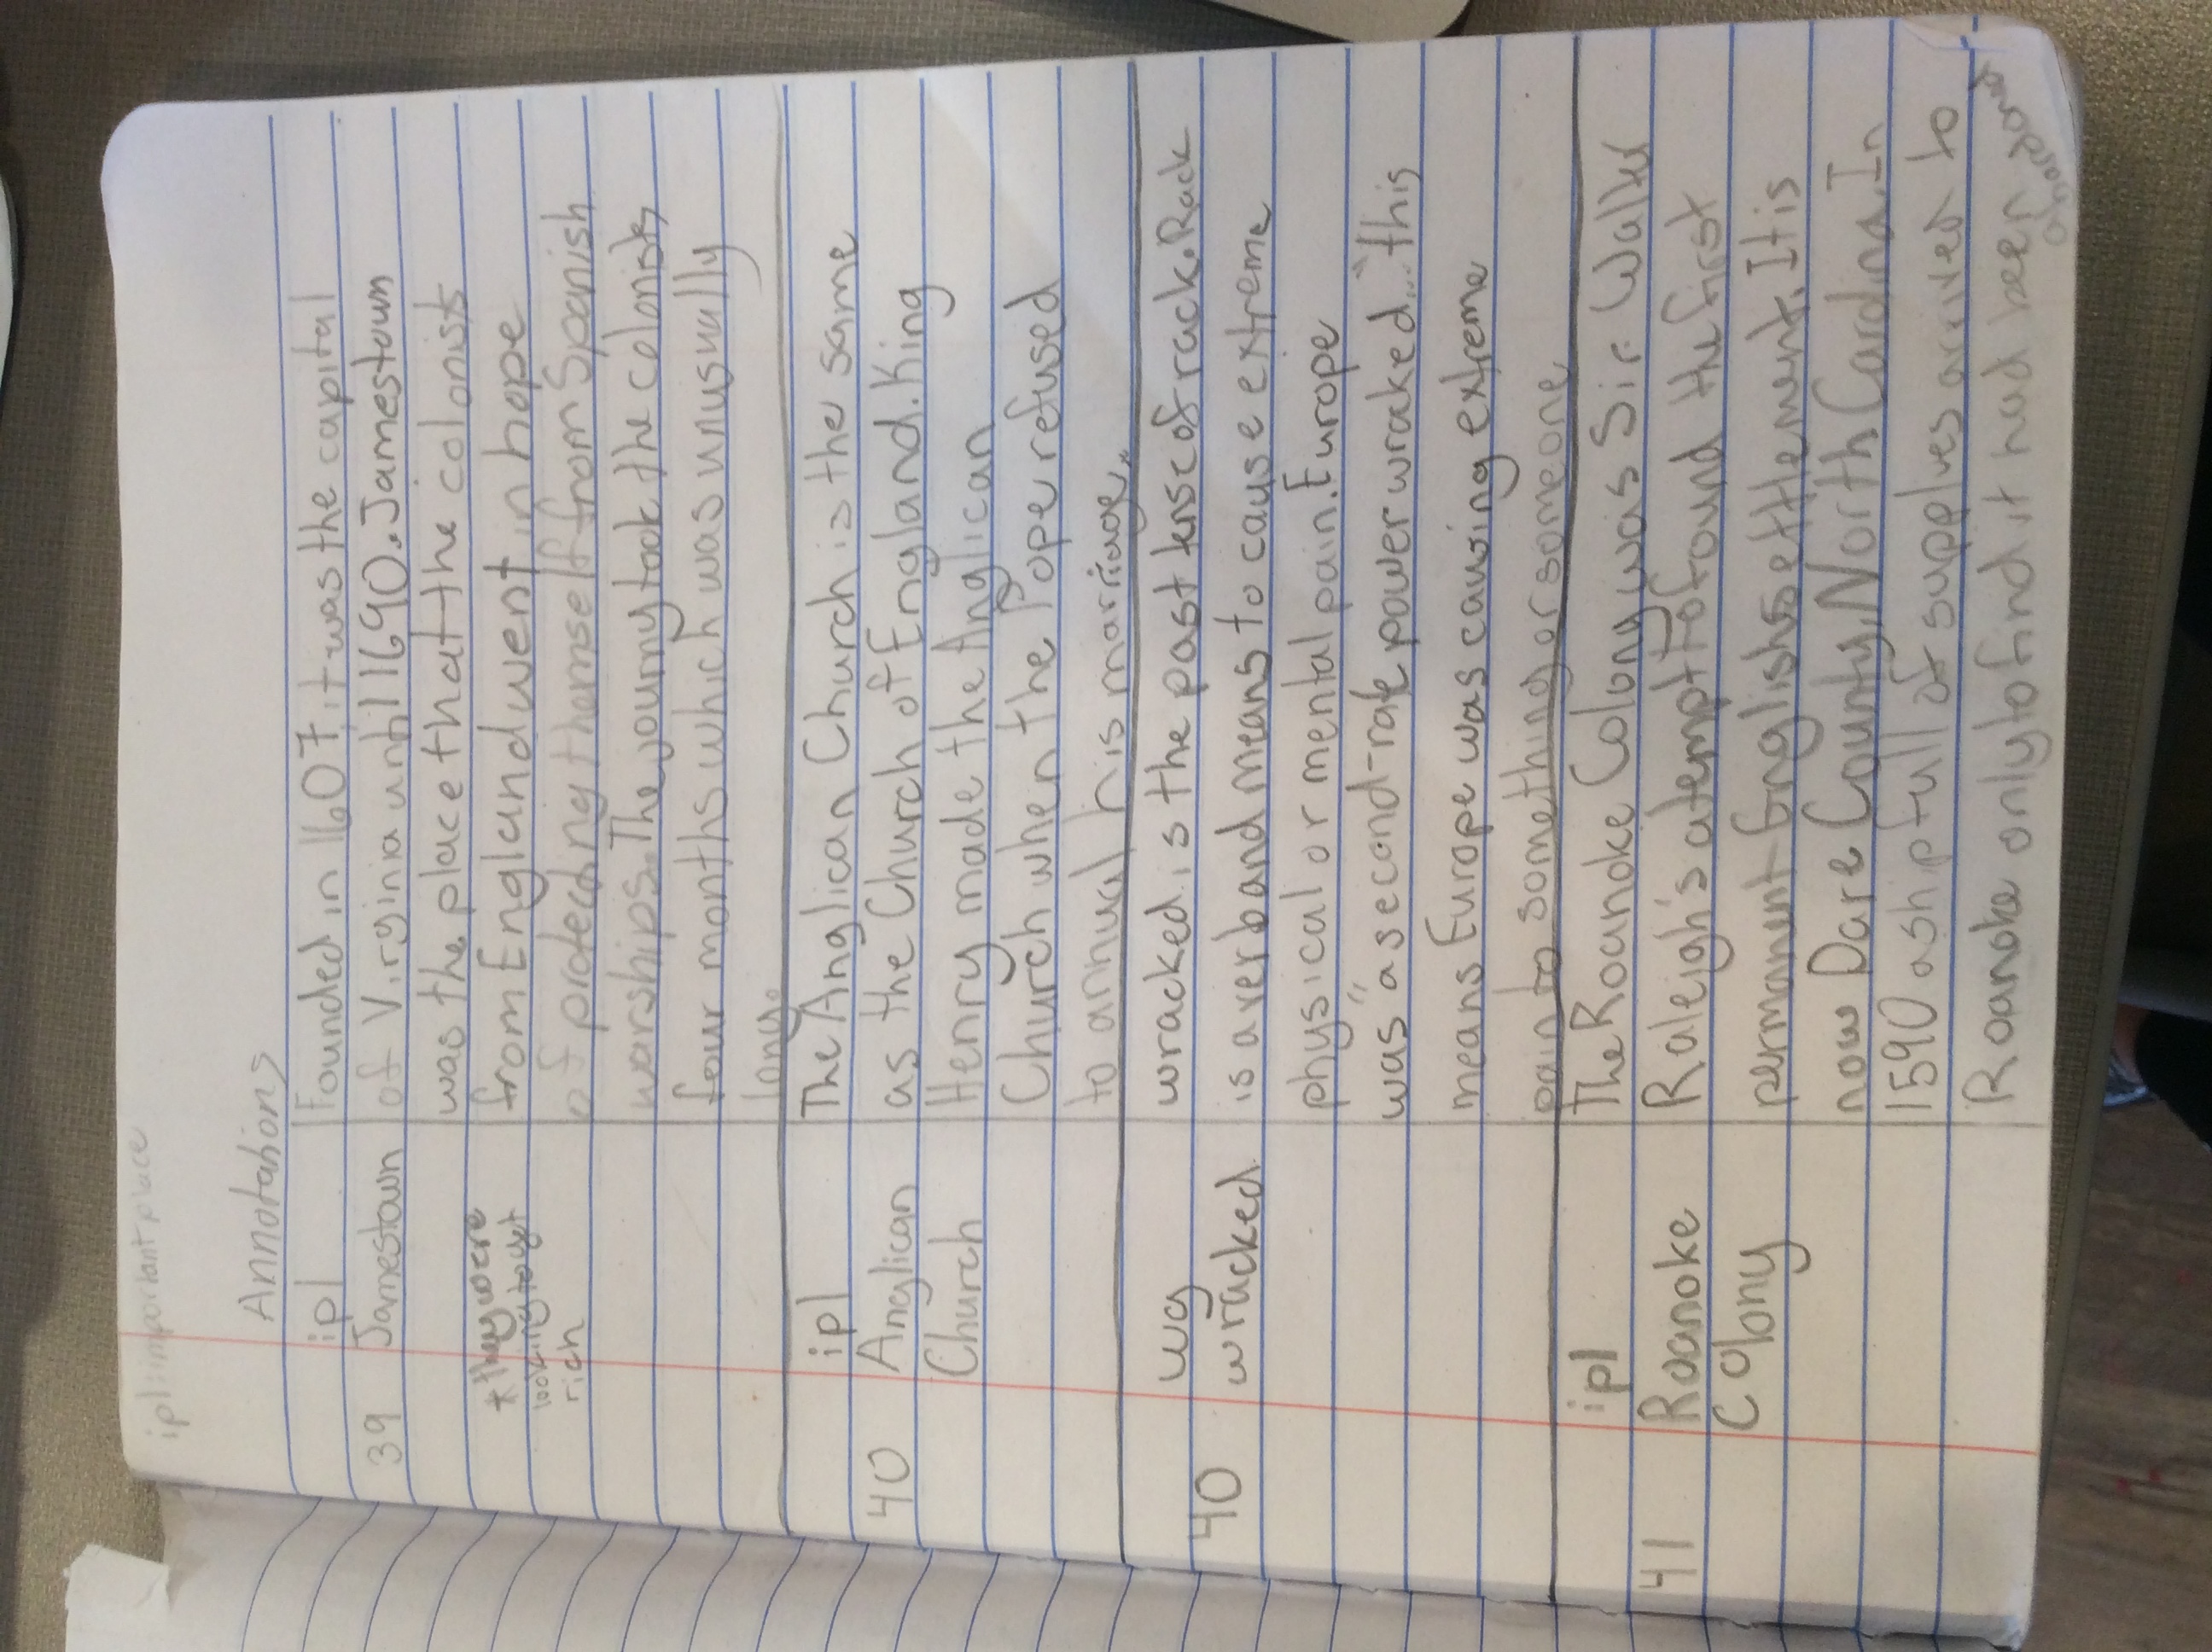 ipl: important place
Annotations
ipl Founded in 1607, it was the capital
39 Jamestown of Virginia until 1690. Jamestown
was the place that the colonists
* they were from England went in hope
looking to get
rich of protecting themself from Spanish
warships. The journy took the colonists
four months which was unusually
long.
ipl The Anglican Church is the same
40 Anglican as the Church of England. King
Church Henry made the Anglican
Church when the Pope refused
to annual his marriage.
wg wracked is the past tense of rack. Rack
40 wracked is a verb and means to cause extreme
physical or mental pain. Europe
was "a second-rate power wracked..." this
means Europe was causing extreme
pain to something or someone
ipl The Roanoke Colony was Sir Walter
41 Roanoke Raleigh's atempt to found the first
Colony permanent English settlement. It is
now Dare County, North Carolina. In
1590 a ship full of supplies arrived to
Roanoke only to find it had been abandoned